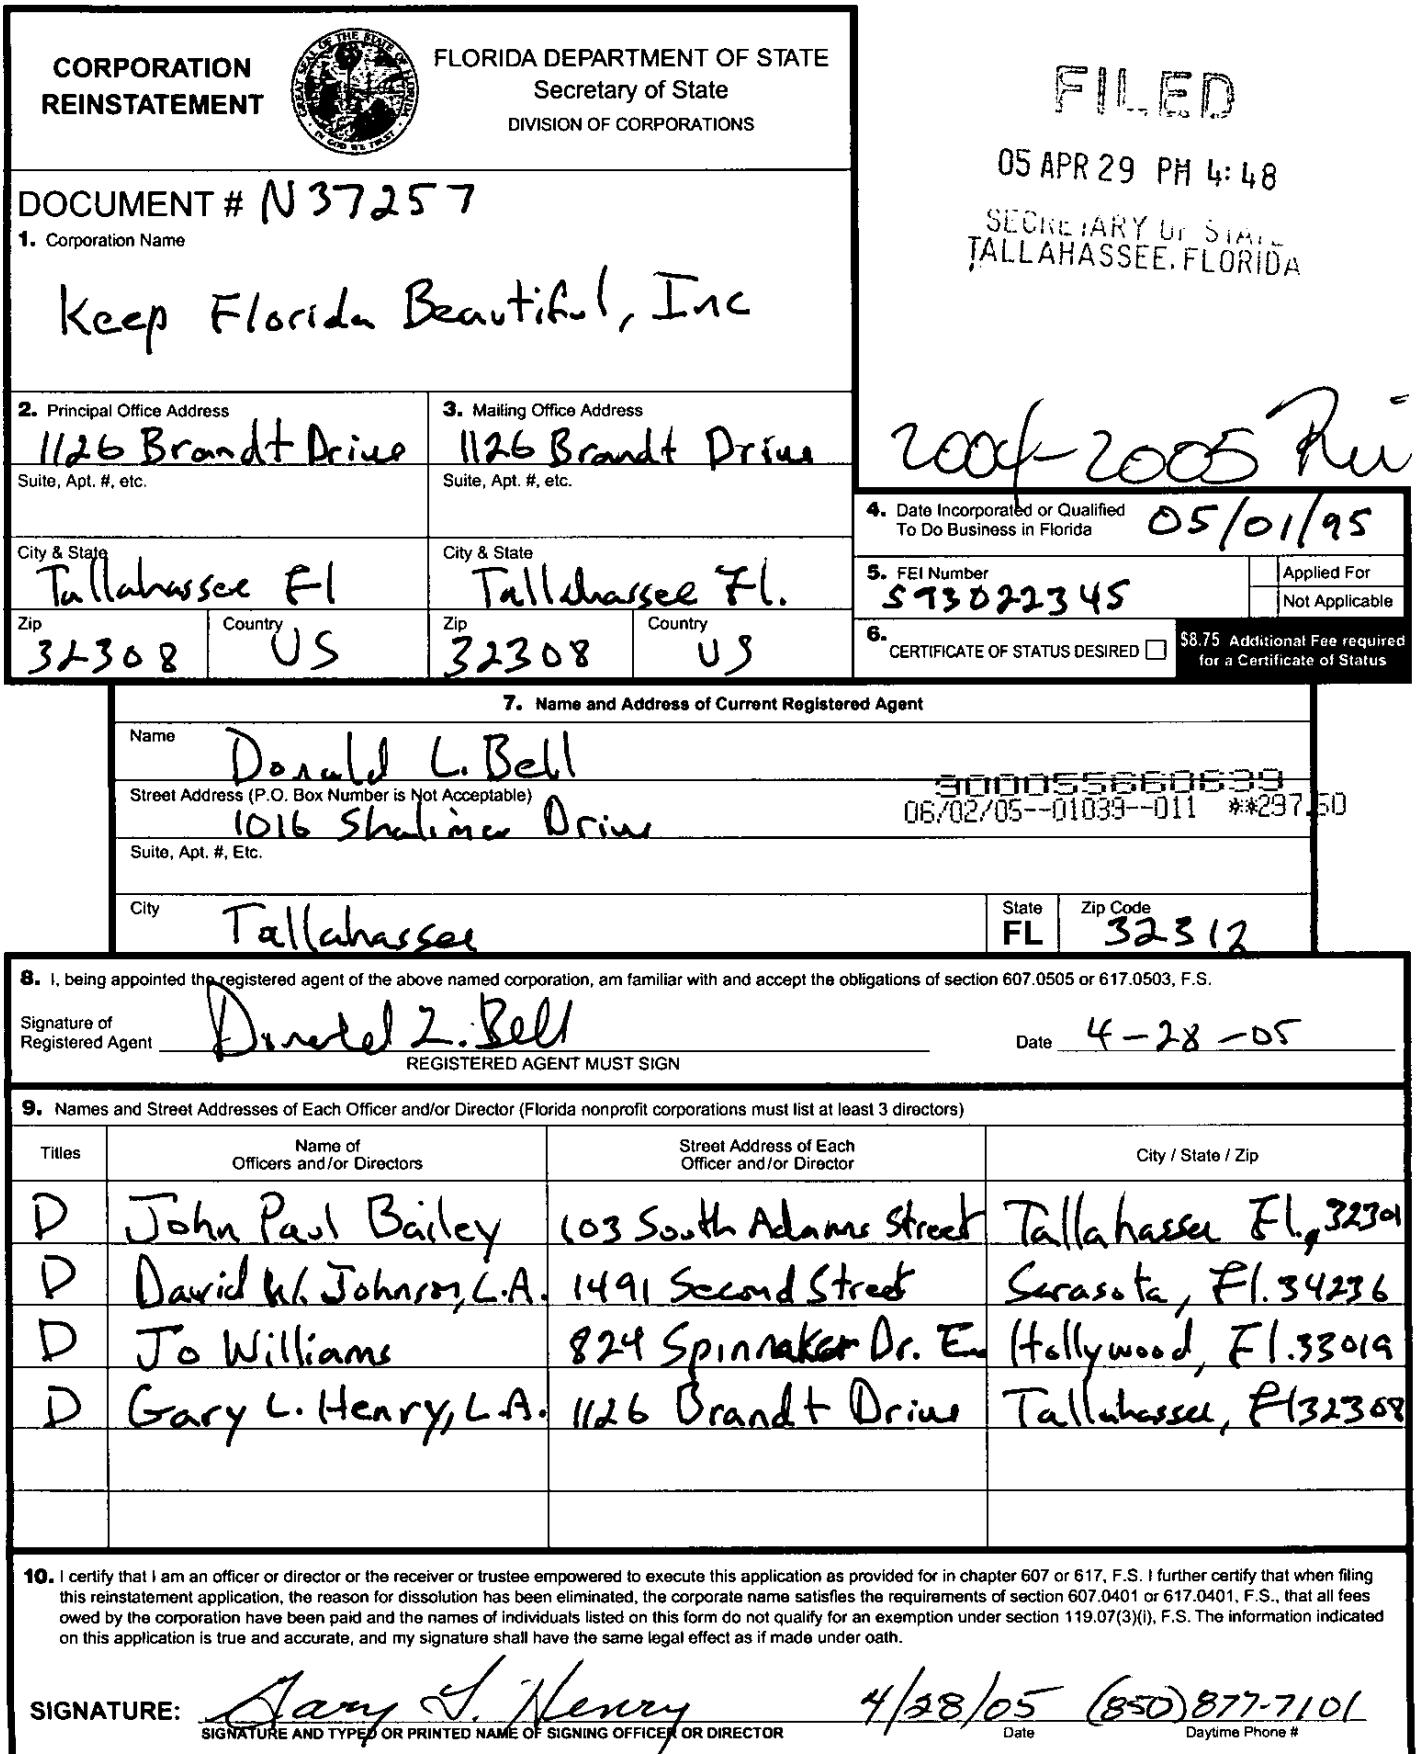 CORPORATION
REINSTATEMENT
GREAT SEAL OF THE STATE OF FLORIDA
IN GOD WE TRUST
FLORIDA DEPARTMENT OF STATE
Secretary of State
DIVISION OF CORPORATIONS
FILED
05 APR 29 PM 4:48
SECRETARY OF STATE
TALLAHASSEE, FLORIDA
DOCUMENT # N37257
1. Corporation Name
Keep Florida Beautiful, Inc
2004-2005
2. Principal Office Address
1126 Brandt Drive
3. Mailing Office Address
1126 Brandt Drive
Suite, Apt. #, etc.
Suite, Apt. #, etc.
City & State
Tallahassee Fl
City & State
Tallahassee Fl.
Zip
32308
Country
US
Zip
32308
Country
US
4. Date Incorporated or Qualified
To Do Business in Florida
05/01/95
5. FEI Number
593022345
Applied For
Not Applicable
6. CERTIFICATE OF STATUS DESIRED
$8.75 Additional Fee required
for a Certificate of Status
7. Name and Address of Current Registered Agent
Name
Donald L. Bell
900055660639
Street Address (P.O. Box Number is Not Acceptable)
1016 Shalimar Drive
06/02/05--01039--011 **297.50
Suite, Apt. #, Etc.
City
Tallahassee
State
FL
Zip Code
32312
8. I, being appointed the registered agent of the above named corporation, am familiar with and accept the obligations of section 607.0505 or 617.0503, F.S.
Signature of
Registered Agent
Donald L. Bell
REGISTERED AGENT MUST SIGN
Date 4-28-05
9. Names and Street Addresses of Each Officer and/or Director (Florida nonprofit corporations must list at least 3 directors)
Titles
Name of
Officers and/or Directors
Street Address of Each
Officer and/or Director
City / State / Zip
D John Paul Bailey 103 South Adams Street Tallahassee Fl., 32301
D David W. Johnson, L.A. 1491 Second Street Sarasota, Fl. 34236
D Jo Williams 824 Spinnaker Dr. E. Hollywood, Fl. 33019
D Gary L. Henry, L.A. 1126 Brandt Drive Tallahassee, Fl 32308
10. I certify that I am an officer or director or the receiver or trustee empowered to execute this application as provided for in chapter 607 or 617, F.S. I further certify that when filing
this reinstatement application, the reason for dissolution has been eliminated, the corporate name satisfies the requirements of section 607.0401 or 617.0401, F.S., that all fees
owed by the corporation have been paid and the names of individuals listed on this form do not qualify for an exemption under section 119.07(3)(i), F.S. The information indicated
on this application is true and accurate, and my signature shall have the same legal effect as if made under oath.
SIGNATURE: Gary L. Henry 4/28/05 (850)877-7101
SIGNATURE AND TYPED OR PRINTED NAME OF SIGNING OFFICER OR DIRECTOR
Date
Daytime Phone #